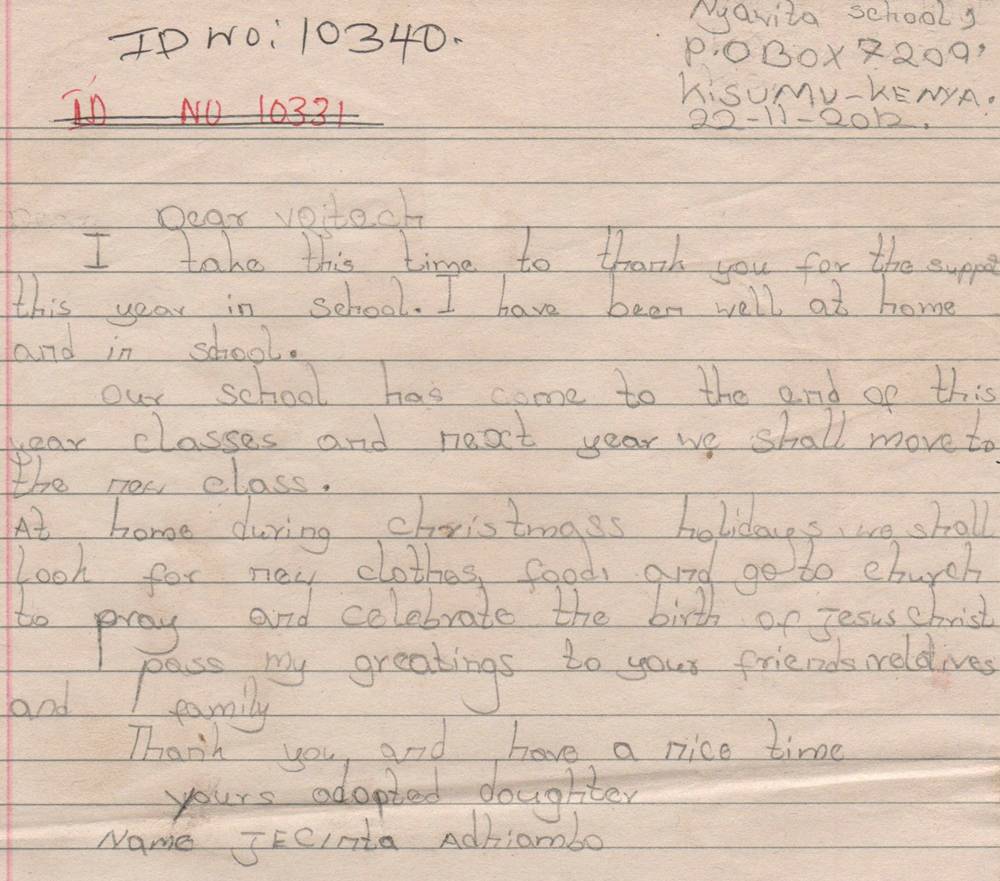 ID NO: 10340.
Nyawita school,
P.O BOX 7209,
KISUMU-KENYA.
ID NO 10331
22-11-2012.
Dear Vojtech
I take this time to thank you for the suppot
this year in school. I have been well at home
and in school.
Our school has come to the end of this
year classes and next year we shall move to
the new class.
At home during christmass holidays we shall
Look for new clothes, foods and go to church
to pray and celebrate the birth of Jesus Christ
pass my greatings to your friends relatives
and family
Thank you, and have a nice time
yours adopted doughter
Name JECINTA Adhiambo